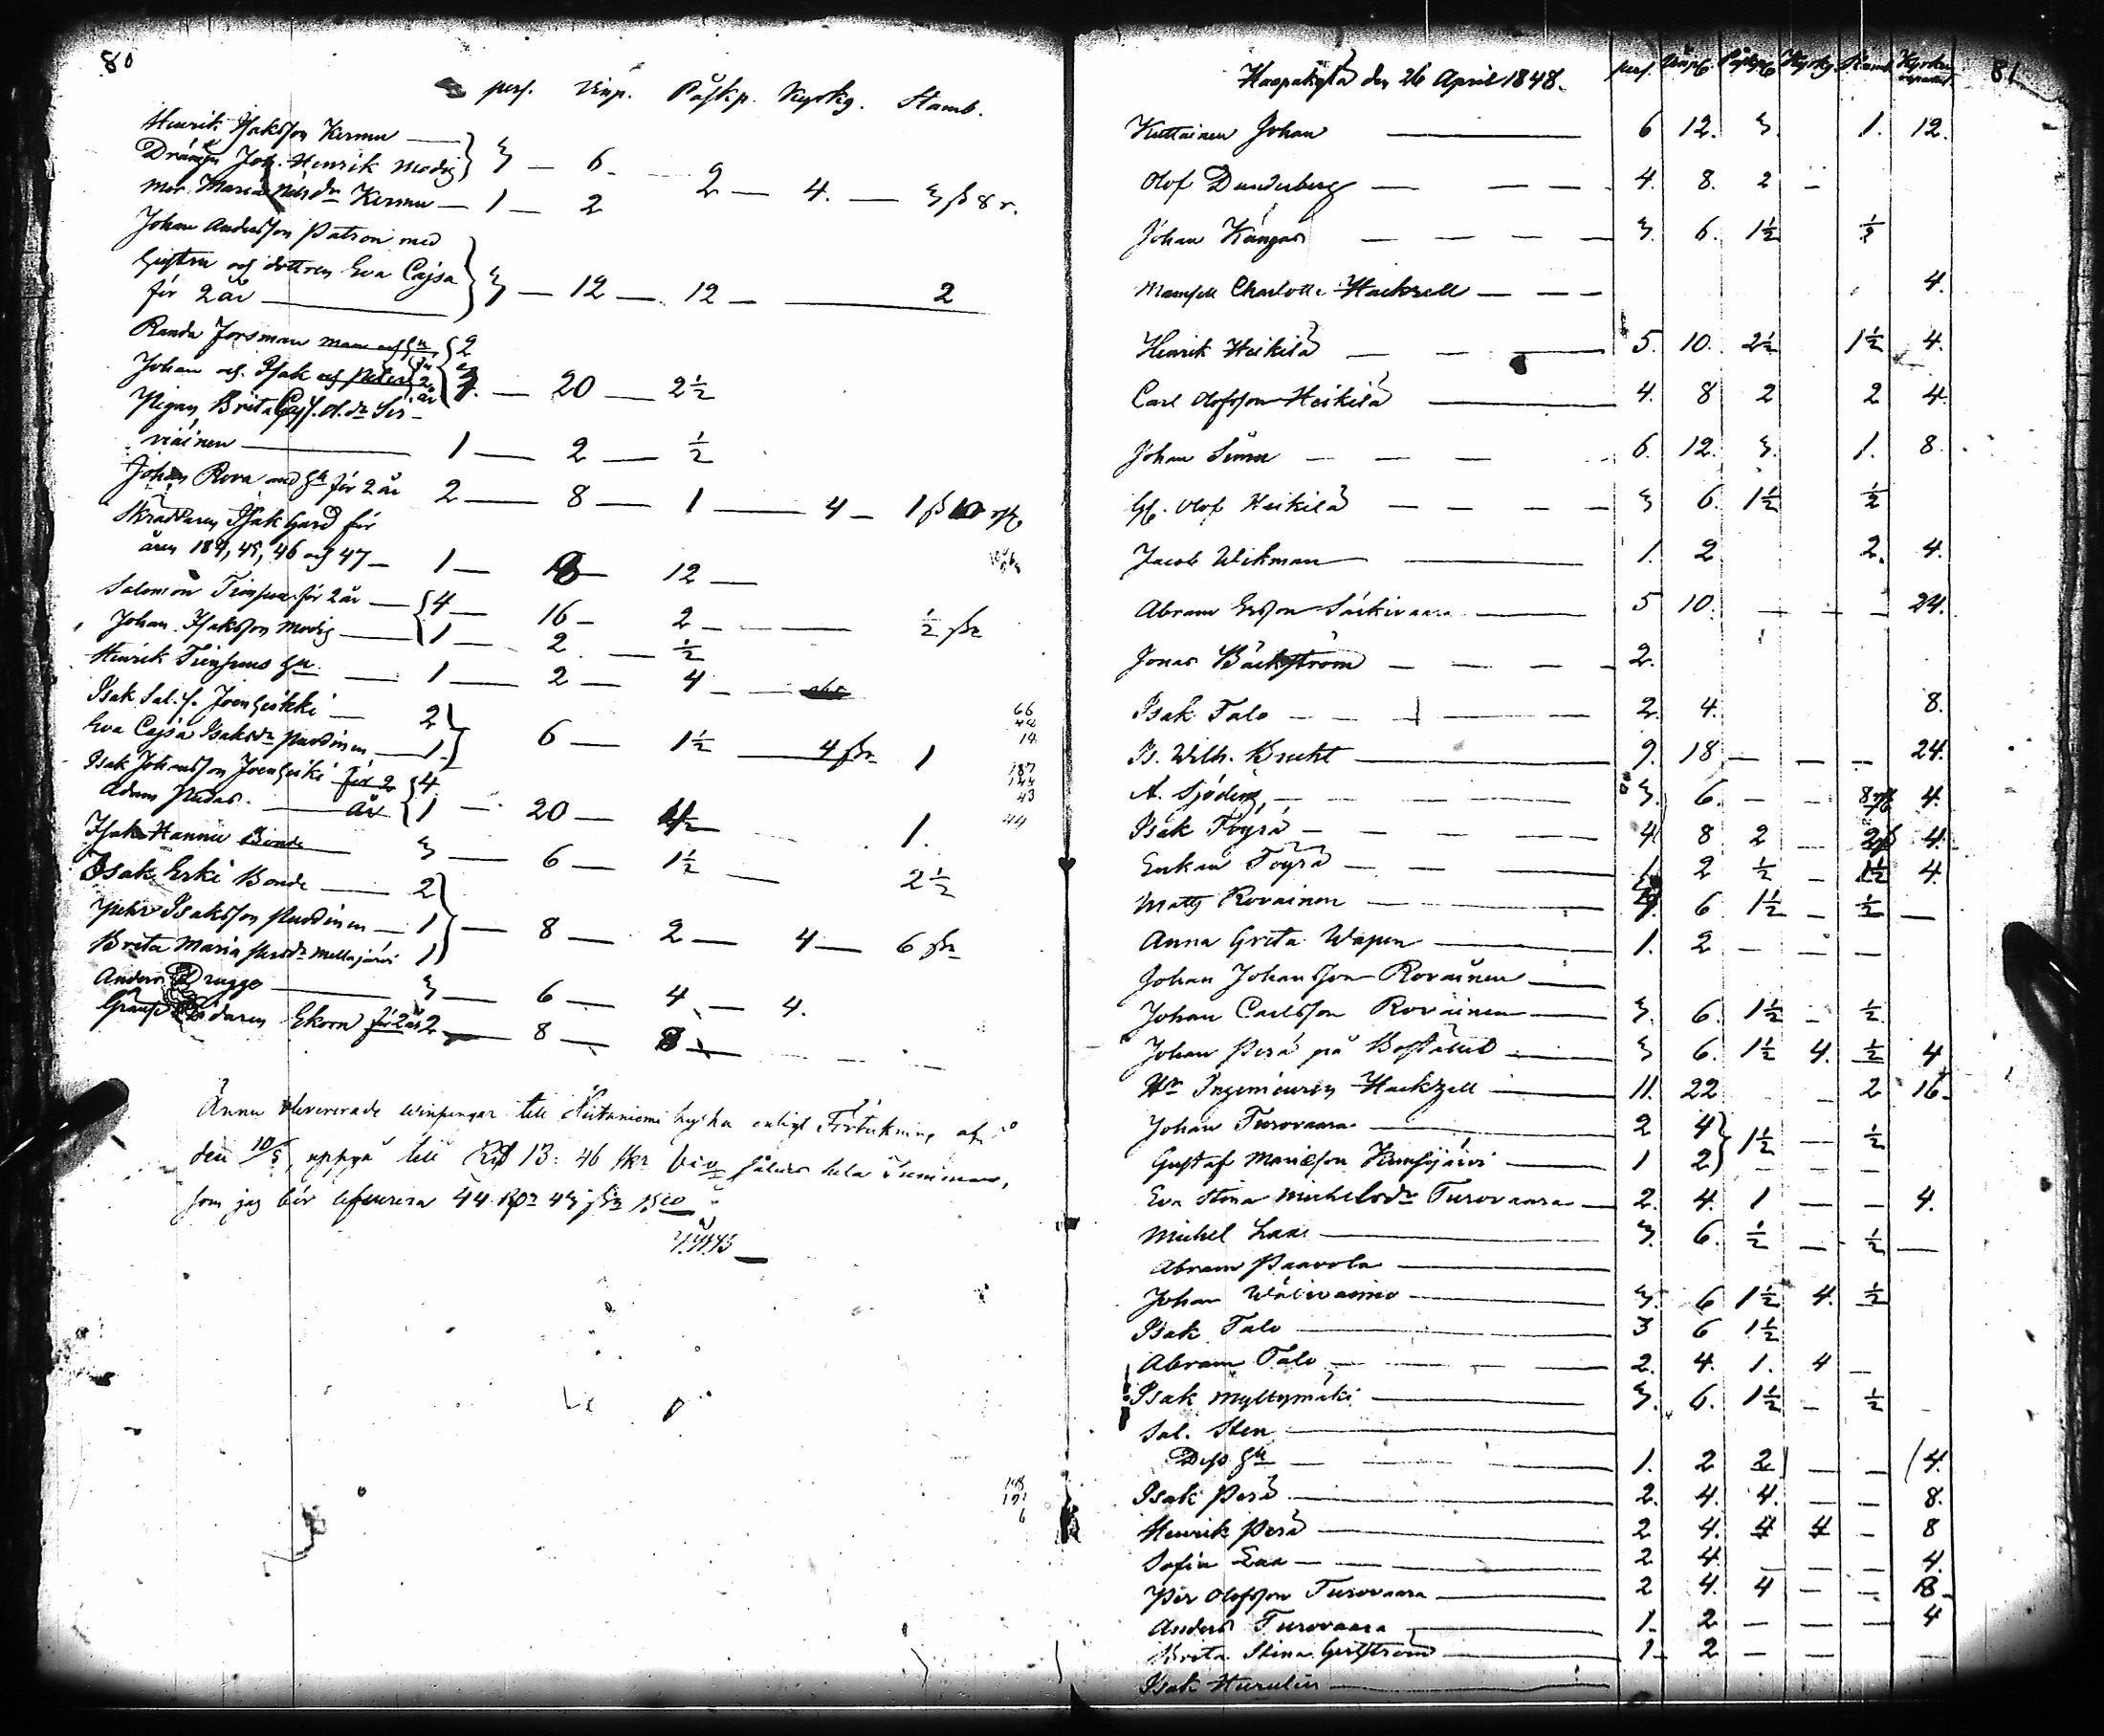 80
pers. Vinp. Påskp. Kyrkg. Stamb.
Henrik Isaksson Kermu —
Drängen Joh. Henrik Modig } 3 — 6 — 2 — 4. — 3 ß 8 r.
Mor Maria Nilsdr Kermu — 1 — 2
Johan Andersson Patron med
hustru och dottren Eva Cajsa
för 2 år — } 3 — 12 — 12 — 2
Randa Forsman man och hu 2
Johan och Isak och — 20 — 2½
Pigan Brita Caj
viäinen — 1 — 2 — ½
Johan Rova med hu för 2 år 2 — 8 — 1 — 4 — 1 ß 10
Skräddaren Isak Gard för
åren 184, 45, 46 och 47 — 1 — 8 — 12 —
Salomon för 2 år — 4 — 16 — 2 — ½
Johan Isaksson Modig — 1 — 2 — ½
Henrik hu — 1 — 2 — 4
Isak Sal. s. Joenheikki — 2
Eva Cajsa Isaksdr Pardinen — 1 } 6 — 1½ — 4 — 1
Isak Johansson Joenheiki för 2 4
Adam år 1 — 20 — 1.
Isak Hannu Bonde 3 — 6 — 1½ — 2½
Isak Erki Bonde — 2
Pehr Isaksson Pardinen — 1 } — 8 — 2 — 4 — 6
Brita Maria Mellajärvi 1
Anders Drugge — 3 — 6 — 4 — 4.
Ekorn för 2 år 2 — 8 — 8
Ännu levererade winpengar till Hietaniemi kyrka enligt Förtekning af
den 10/5, uppgå till Rd 13: 46 skr Bco således hela Summan,
som jag bör lefverera 44 Rdr 43 Bco
66
42
14
187
144
43
44
81
Haapakylä den 26 April 1848. pers. Vinp. Påskp. Kyrkg. Stamb. Kyrko
Kuttainen Johan — 6 12. 3. 1. 12.
Olof Dunderberg — 4. 8. 2 -
Johan Kangas — 3. 6. 1½ ½
Mamsell Charlotte Hackzell — 4.
Henrik Heikilä — 5. 10. 2½ 1½ 4.
Carl Olofsson Heikilä — 4. 8 2 2 4.
Johan Simu — 6. 12. 3. 1. 8.
Olof Heikilä — 3 6. 1½ ½
Jacob Wikman — 1. 2 2. 4.
Abram Ersson Särkivaara — 5 10. — 24.
Jonas Bäckström — 2.
Isak Talo — 2. 4. 8.
Is. Wilh. Brucht — 9. 18 — 24.
A. Sjöding, — 3. 6. — 8 4.
Isak Töyrä — 4. 8 2 — 2 4.
Enkan Töyrä — 1. 2 ½ — 1½ 4.
Matts Rovainen — 6 1½ — ½ —
Anna Greta Wapen — 1. 2 —
Johan Johansson Rovainen —
Johan Carlsson Rovainen — 3. 6. 1½ — ½
Johan Perä på Bostället — 3 6. 1½ 4. ½ 4
Hr Ingenieuren Hackzell — 11. 22 — 2 16.
Johan Turovaara — 2 4 } 1½ — ½
Gustaf Mariæson Kuusijärvi — 1 2
Eva Stina Michelsdr Turovaara — 2. 4. 1 — 4.
Michel Laa — 3. 6. ½ — ½ —
Abram Paavola —
Johan Wälivainio — 3. 6 1½ 4. ½
Isak Talo — 3 6 1½
Abram Talo — 2. 4. 1. 4 —
Isak Myllymäki — 3. 6. 1½ — ½
Sal. Sten —
Dess hu — 1. 2 2 — 4.
Isak Perä — 2. 4. 4. — 8.
Henrik Perä — 2 4. 4 4 — 8
Sofia Laa — 2 4. — 4.
Per Olofsson Turovaara — 2 4. 4 — 8
Anders Turovaara — 1. 2 — 4
Brita Stina — 1. 2 —
Isak Hurulin —